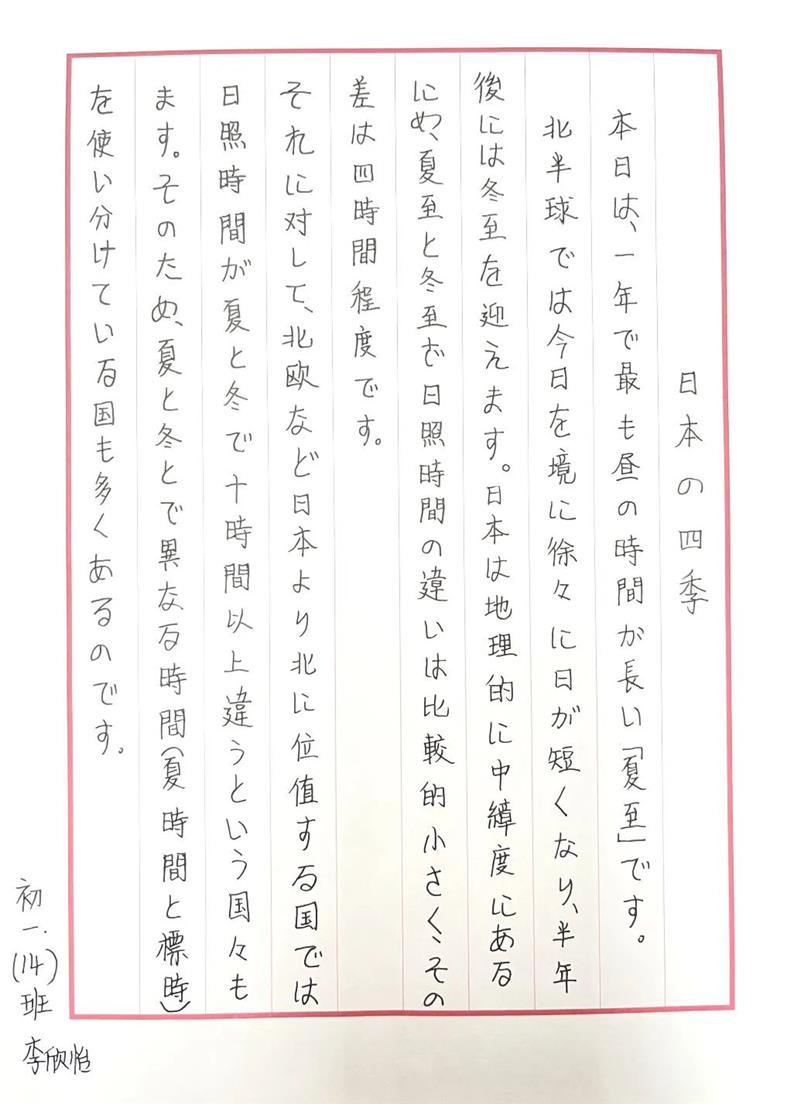 日本の四季
本日は、一年で最も昼の時間が長い「夏至」です。
北半球では今日を境に徐々に日が短くなり、半年
後には冬至を迎えます。日本は地理的に中緯度にある
にめ、夏至と冬至で日照時間の違いは比較的小さく、その
差は四時間程度です。
それに対して、北欧など日本より北に位值する国では
日照時間が夏と冬で十時間以上違うという国々も
ます。そのため、夏と冬とで異なる時間(夏時間と標時)
を使い分けている国も多くあるのです。
初一.(14)班 李欣怡